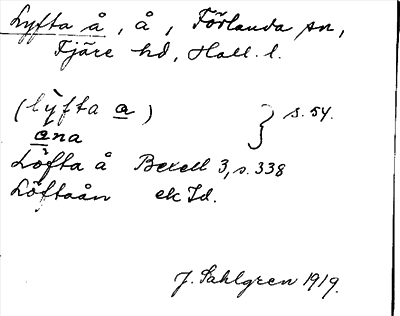 Lyfta å, å, Förlanda sn,
Fjäre hd, Hall. l.
(lỳfta a) } s. 54.
ana
Löfta å Bexell 3, s. 338
Löftaån ek Id.
J. Sahlgren 1919.